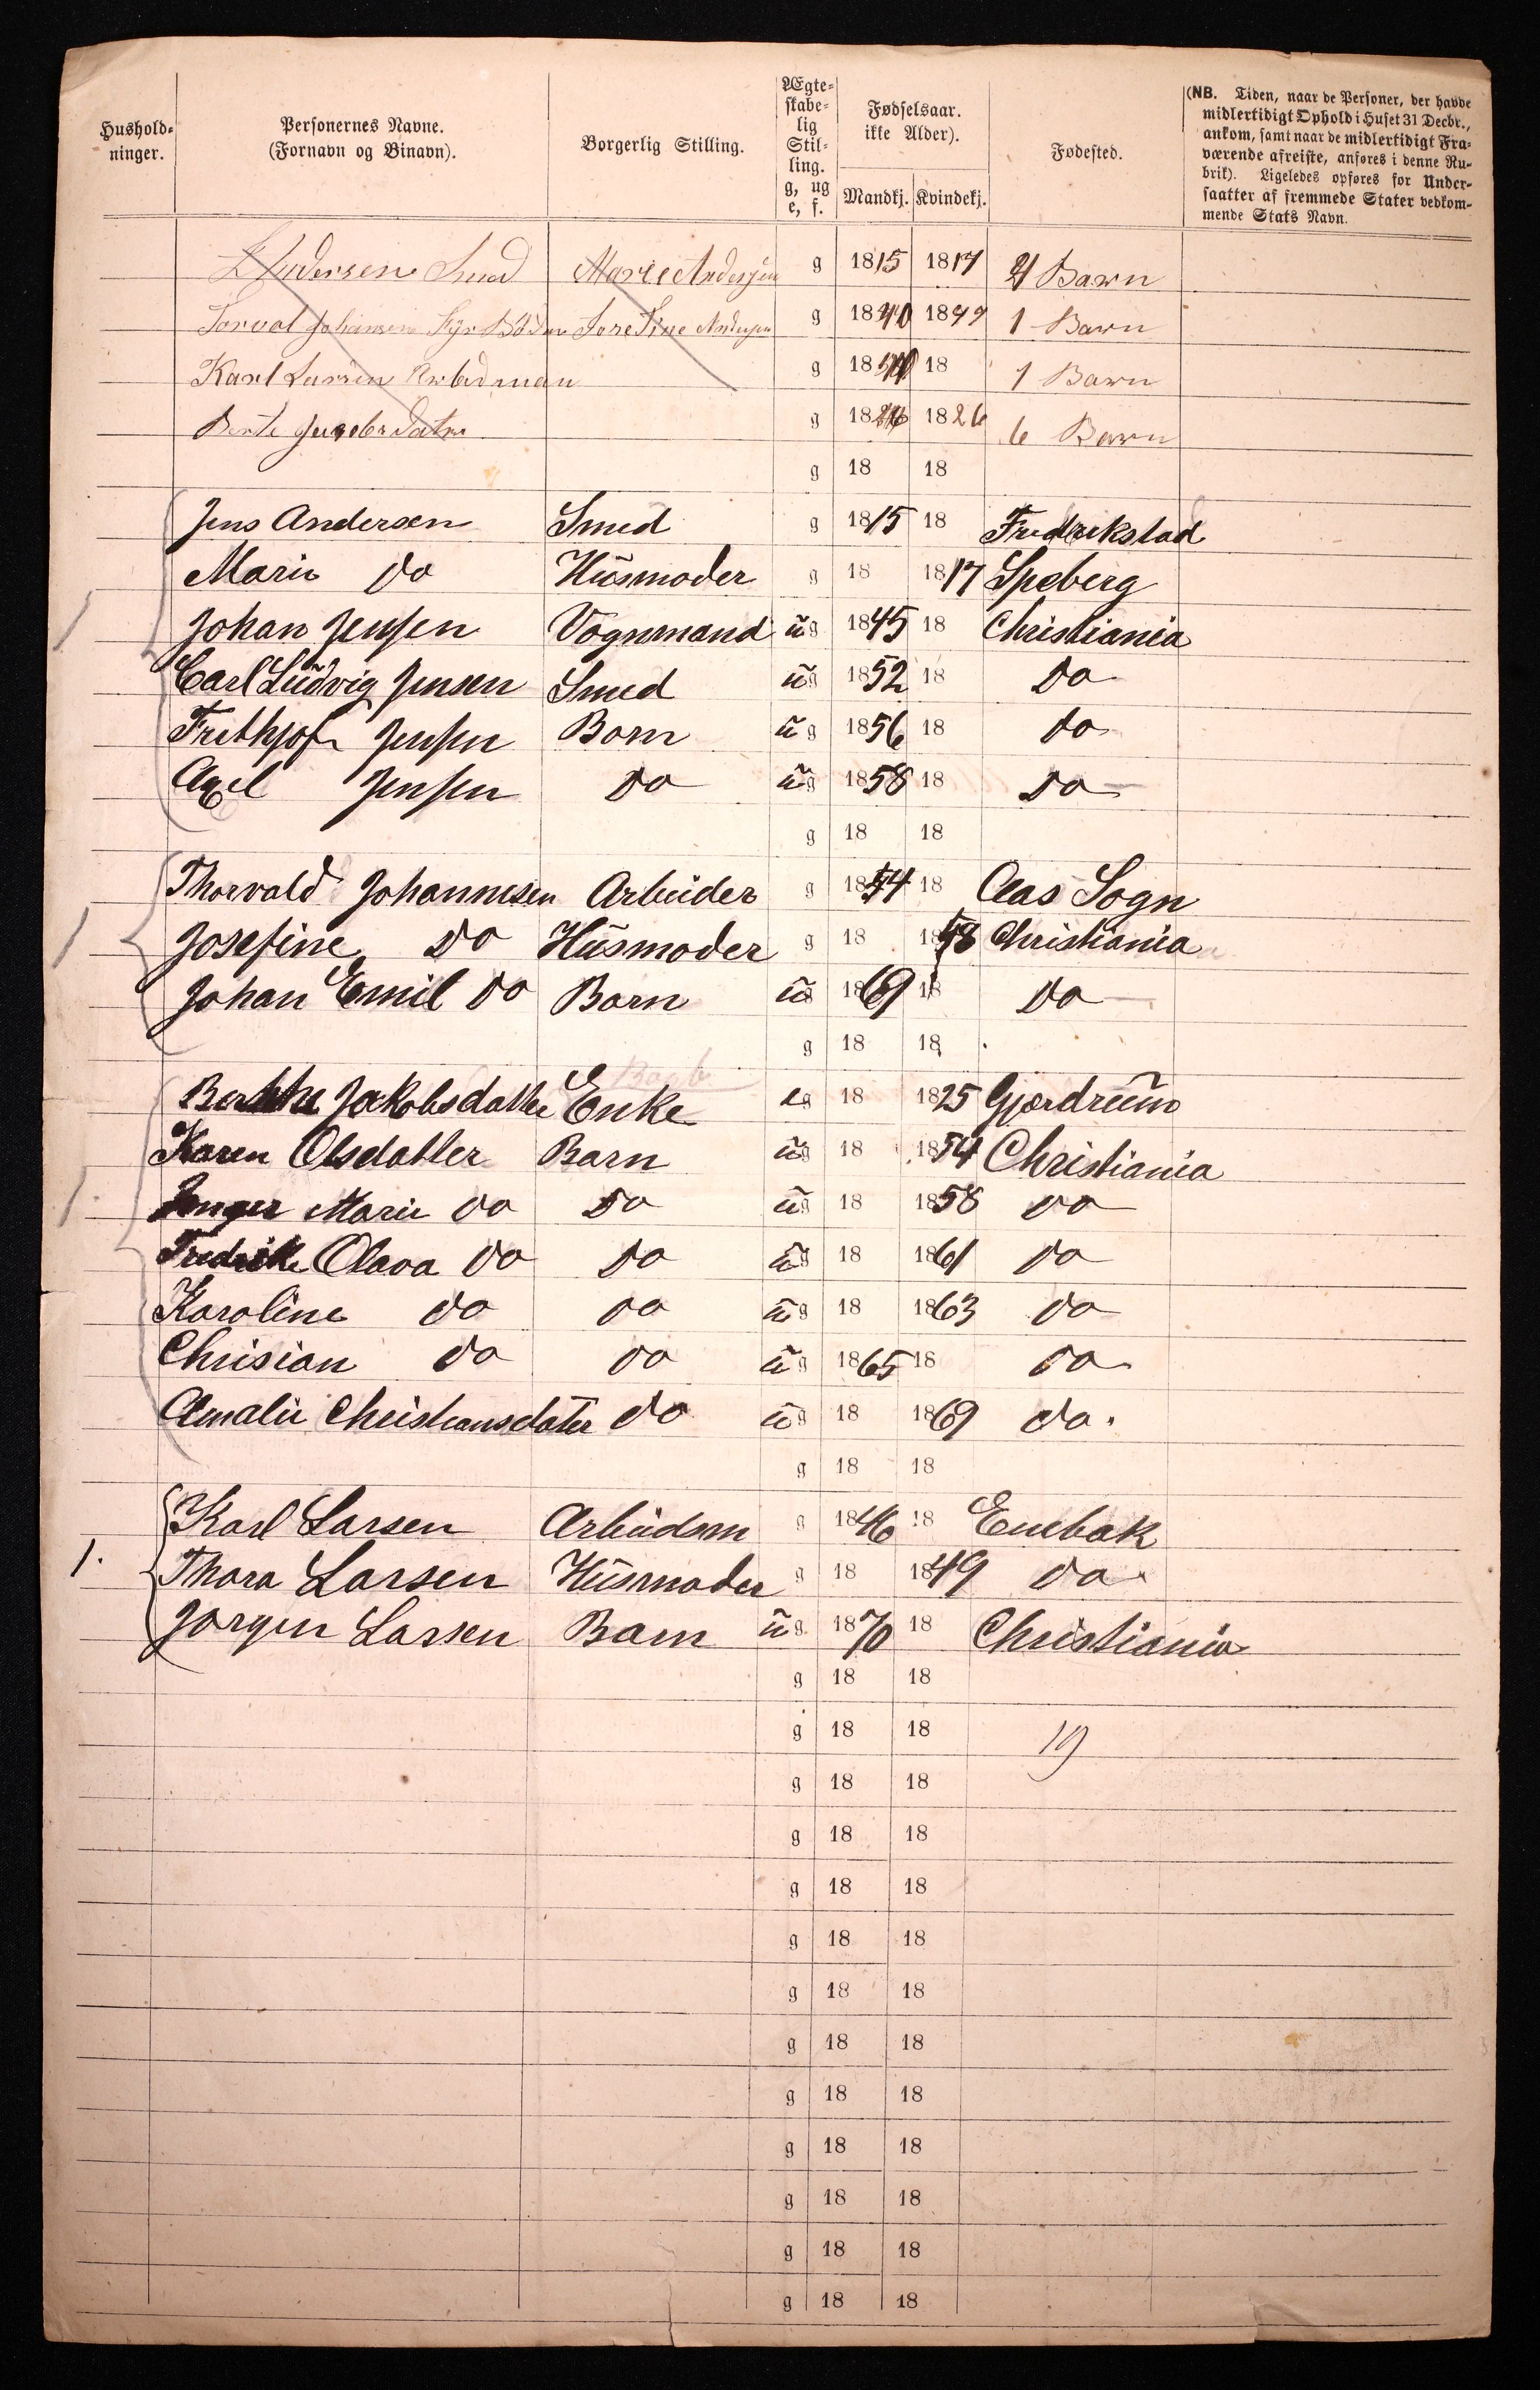 Hushold-
ninger.
Personernes Navne.
(Fornavn og Binavn).
Borgerlig Stilling.
Ægte-
skabe-
lig
Stil-
ling.
g, ug
e, f.
Fødselsaar.
ikke Alder).
Mandkj. Kvindekj.
Fødested.
(NB. Tiden, naar de Personer, der havde
midlertidigt Ophold i Huset 31 Decbr.,
ankom, samt naar de midlertidigt Fra-
værende afreiste, anføres i denne Ru-
brik). Ligeledes opføres for Under-
saatter af fremmede Stater vedkom-
mende Stats Navn.
Andersen Smed Marie Andersen g 1815 1817 4 Barn
Torval Johansen g 1840 1849 1 Barn
Karl Larsen Arbedman g 18 18 1 Barn
Berte g 18 1826 6 Barn
g 18 18
Jens Andersen Smed g 1815 18 Fredrikstad
Marie do Husmoder g 18 1817 Speberg
Johan Jensen Vognmand ug 1845 18 Christiania
Carl Ludvig Jensen Smed ug 1852 18 do
Frithjof Jensen Barn ug 1856 18 do
Axel Jensen do ug 1858 18 do
g 18 18
Thorvald Johannesen Arbeider g 18 18 Aas Sogn
Josefine do Husmoder g 18 1848 Christiania
Johan Emil do Barn ug 1869 18 do
g 18 18
Berthe Jakobsdatter Enke eg 18 1825 Gjerdrum
Karen Olsdatter Barn ug 18 1854 Christiania
Inger Marie do do ug 18 1858 do
Fredrikke Olava do do ug 18 1861 do
Karoline do do ug 18 1863 do
Chrisian do do ug 1865 18 do
Amalie Christiansdater do ug 18 1869 do.
g 18 18
Karl Larsen Arbeidsm g 1846 18 Enebak
1. Thora Larsen Husmoder g 18 1849 do
Jørgen Larsen Barn ug. 1870 18 Christiania
g 18 18
g 18 18 19
g 18 18
g 18 18
g 18 18
g 18 18
g 18 18
g 18 18
g 18 18
g 18 18
g 18 18
g 18 18
g 18 18